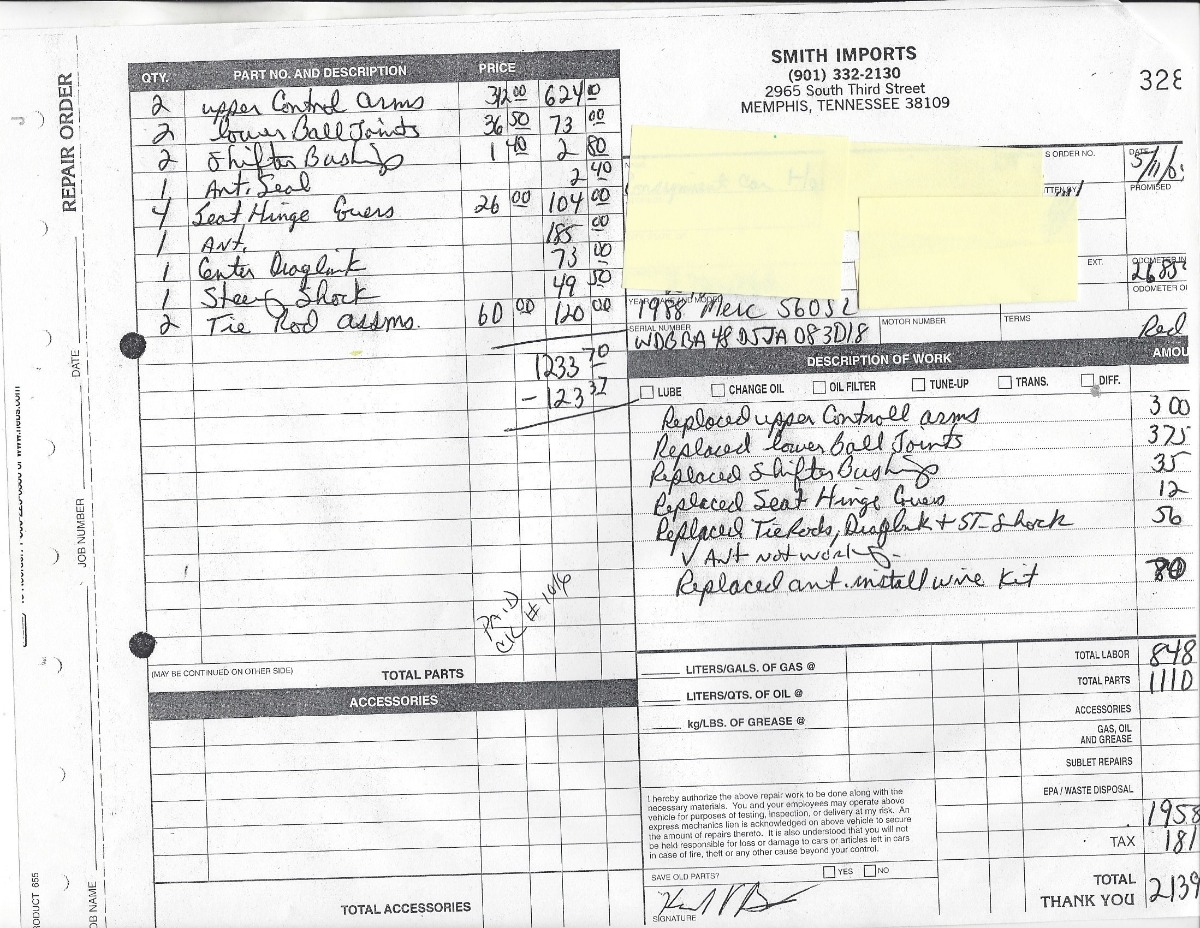 SMITH IMPORTS
(901) 332-2130
2965 South Third Street
MEMPHIS, TENNESSEE 38109
328
REPAIR ORDER
DATE
JOB NUMBER
JOB NAME
QTY. PART NO. AND DESCRIPTION PRICE
2 upper Control arms 312 00 624 00
2 lower Ball Joints 36 50 73 00
2 Shifter Bushing 1 40 2 80
1 Ant. Seal 2 40
4 Seat Hinge Covers 26 00 104 00
1 Ant. 185 00
1 Center Draglink 73 00
1 Steering Shock 49 50
2 Tie Rod assms. 60 00 120 00
1233 70
- 123 37
PAID
CK # 1446
(MAY BE CONTINUED ON OTHER SIDE) TOTAL PARTS
ACCESSORIES
TOTAL ACCESSORIES
S ORDER NO.
DATE
5/11/0
PROMISED
EXT.
ODOMETER IN
2685
YEAR MAKE AND MODEL
1988 Merc 560SL
SERIAL NUMBER
WDBBA48D5JA083018
MOTOR NUMBER
TERMS
Red
DESCRIPTION OF WORK AMOU
LUBE CHANGE OIL OIL FILTER TUNE-UP TRANS. DIFF.
Replaced upper Controll arms 300
Replaced lower Ball Joints 375
Replaced Shifter Bushing 35
Replaced Seat Hinge Covers 12
Replaced Tie Rods, Draglink + ST-Shock 56
√ Ant not working -
Replaced ant. install wire Kit 70
LITERS/GALS. OF GAS @
LITERS/QTS. OF OIL @
kg/LBS. OF GREASE @
TOTAL LABOR 848
TOTAL PARTS 1110
ACCESSORIES
GAS, OIL
AND GREASE
SUBLET REPAIRS
EPA / WASTE DISPOSAL
1958
TAX 181
TOTAL 2139
THANK YOU
I hereby authorize the above repair work to be done along with the
necessary materials. You and your employees may operate above
vehicle for purposes of testing, inspection, or delivery at my risk. An
express mechanics lien is acknowledged on above vehicle to secure
the amount of repairs thereto. It is also understood that you will not
be held responsible for loss or damage to cars or articles left in cars
in case of fire, theft or any other cause beyond your control.
SAVE OLD PARTS? YES NO
SIGNATURE